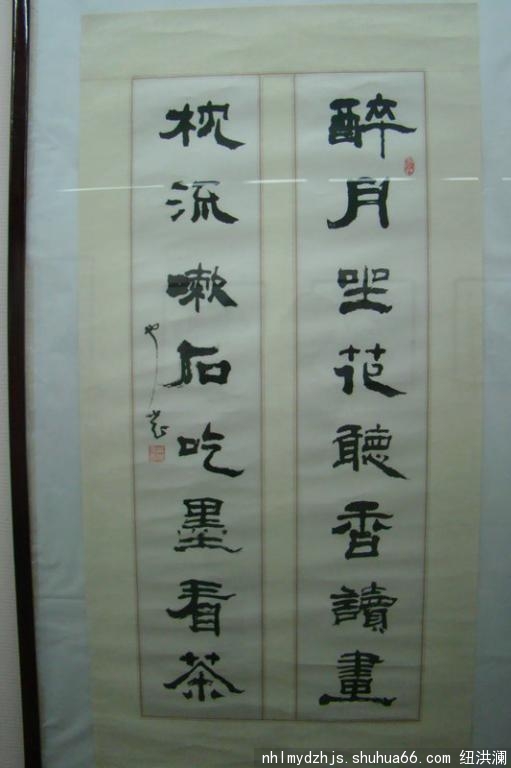 醉月坐花聽香讀畫
枕流嗽石吃墨看茶
nhlmydzhjs.shuhua66.com 纽洪澜